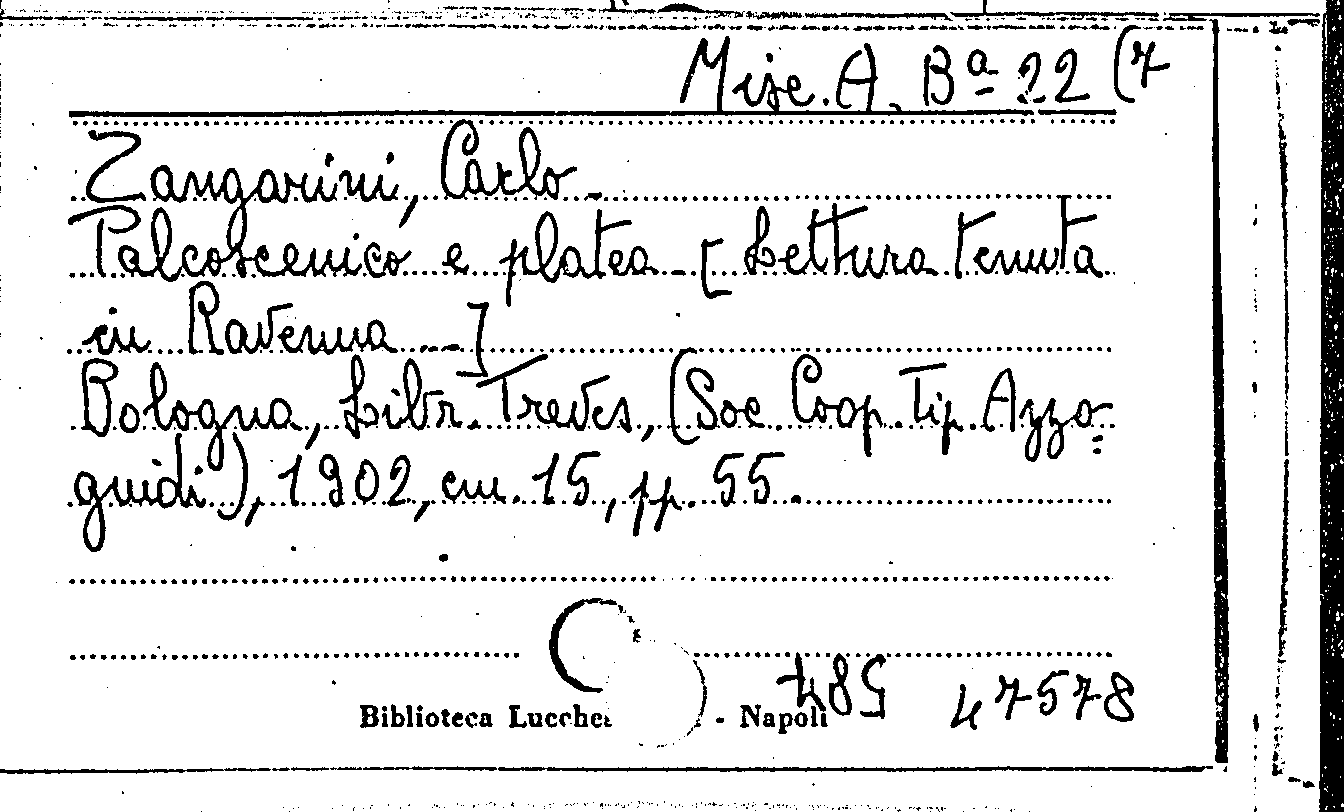 Misc. A. Bª 22 (7
Zangarini, Carlo -
Palcoscenico e platea - [Lettura tenuta
in Ravenna ...]
Bologna, Libr. Treves, (Soc. Coop. Tip. Azzo=
guidi), 1902, cm. 15, pp. 55.
47578
Biblioteca Lucchesi - Napoli